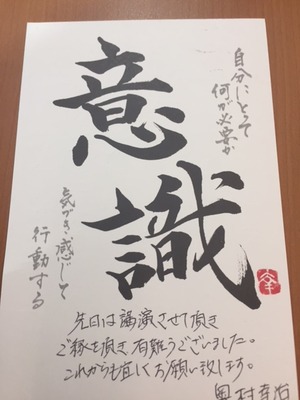 自分にとって
何が必要か
意識
気づき感じて
行動する
幸
先日は講演させて頂き
ご縁を頂き有難うございました。
これからも宜しくお願い致します。
奥村幸治